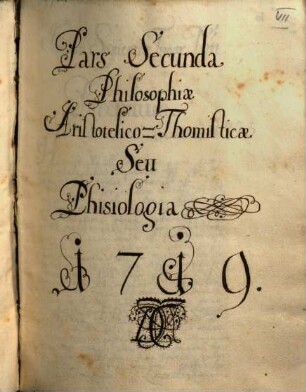 VII
Pars Secunda
Philosophiæ
Aristotelico=Thomisticæ
Seu
Phisiologia
1719.